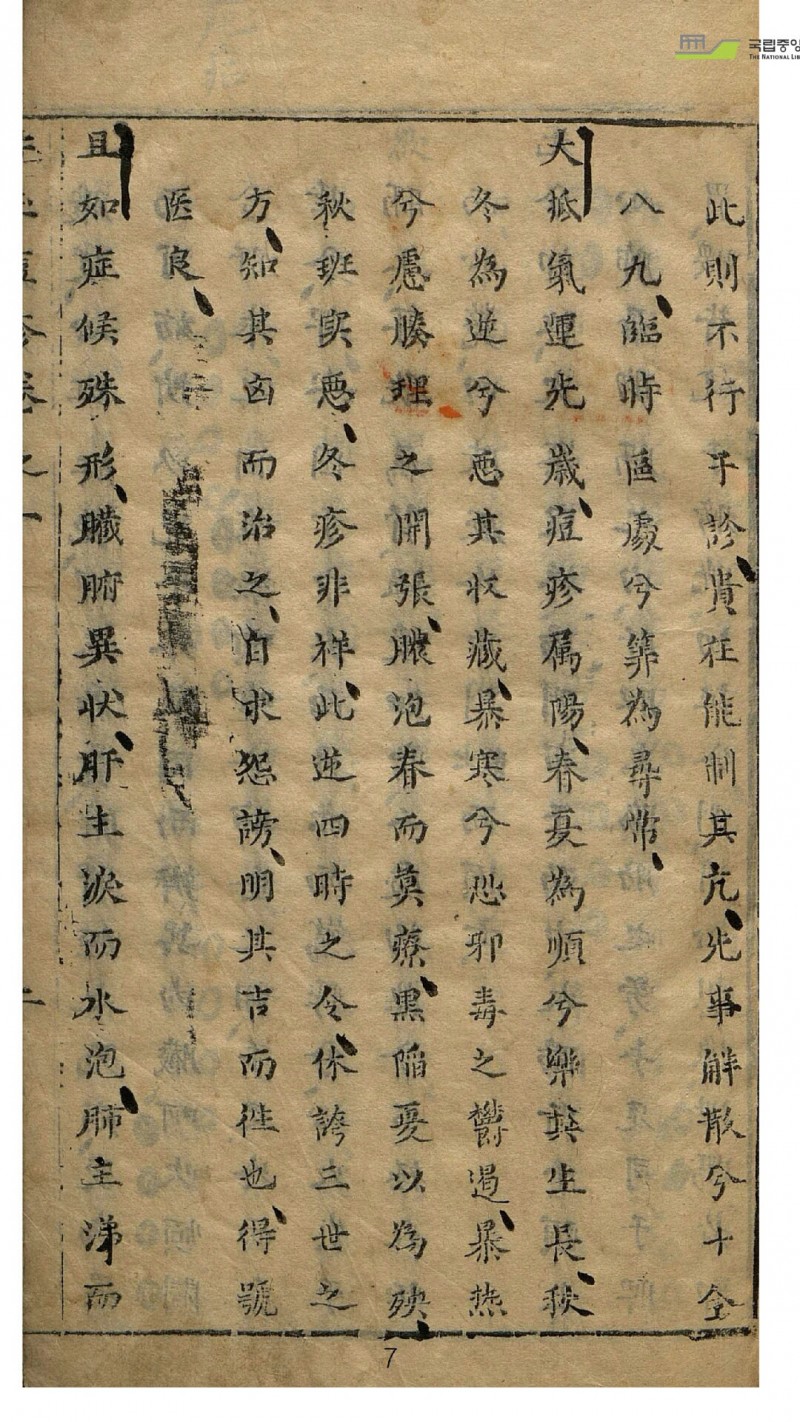 국립중앙
THE NATIONAL LIB
此則不行乎診貴在能制其亢先事解散兮十全
八九臨時區處兮筭為尋常
大抵氣運先歲痘疹属陽春夏為順兮樂其生長秋
冬為逆兮惡其收藏暴寒兮恐邪毒之鬱遏暴热
兮慮腠理之開張膿泡春而莫療黑陷夏以為殃
秋班实惡冬疹非祥此逆四時之令休誇三世之
方知其凶而治之自求怨謗明其吉而徃也得號
医良
且如症候殊形臓腑異状肝主淚而水泡肺主涕而
痘疹卷之一
二
7